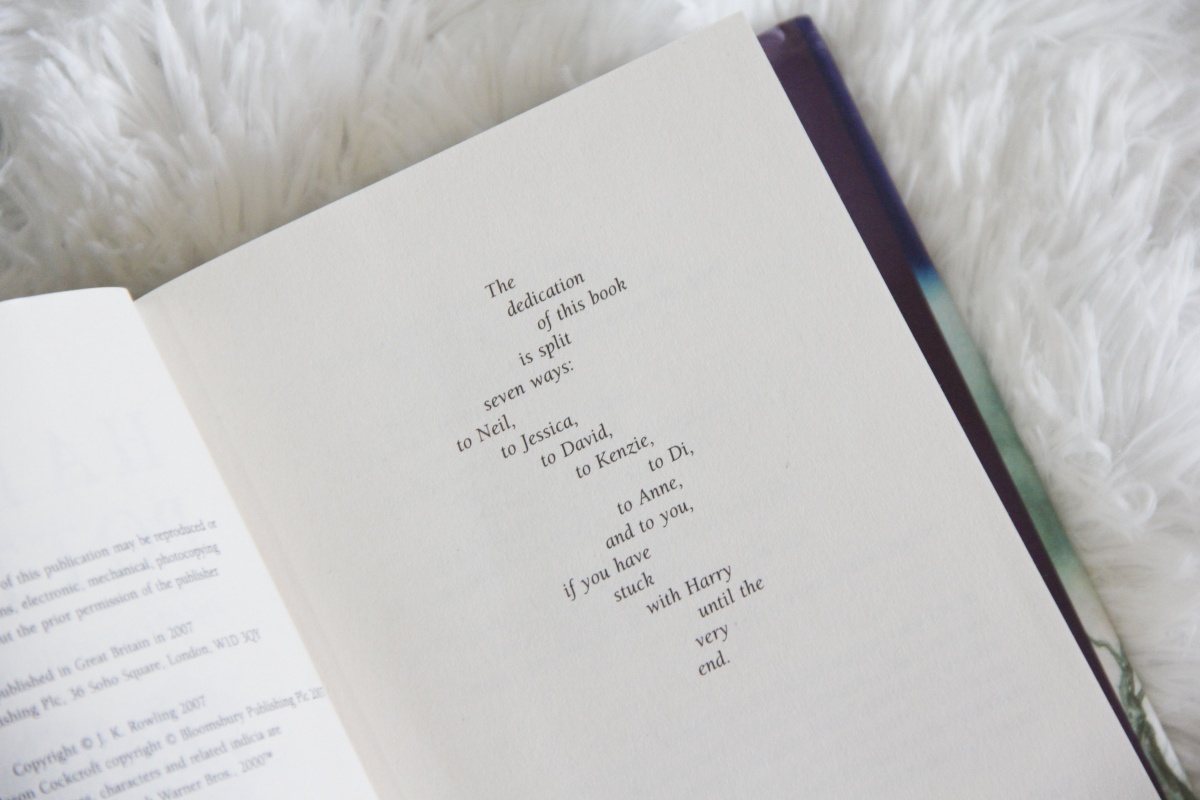 of this publication may be reproduced or
ns, electronic, mechanical, photocopying
ut the prior permission of the publisher
ublished in Great Britain in 2007
shing Plc, 36 Soho Square, London, W1D 3QY
Copyright © J. K. Rowling 2007
son Cockcroft copyright © Bloomsbury Publishing Plc 2007
characters and related indicia are
Warner Bros., 2000™
The
dedication
of this book
is split
seven ways:
to Neil,
to Jessica,
to David,
to Kenzie,
to Di,
to Anne,
and to you,
if you have
stuck
with Harry
until the
very
end.